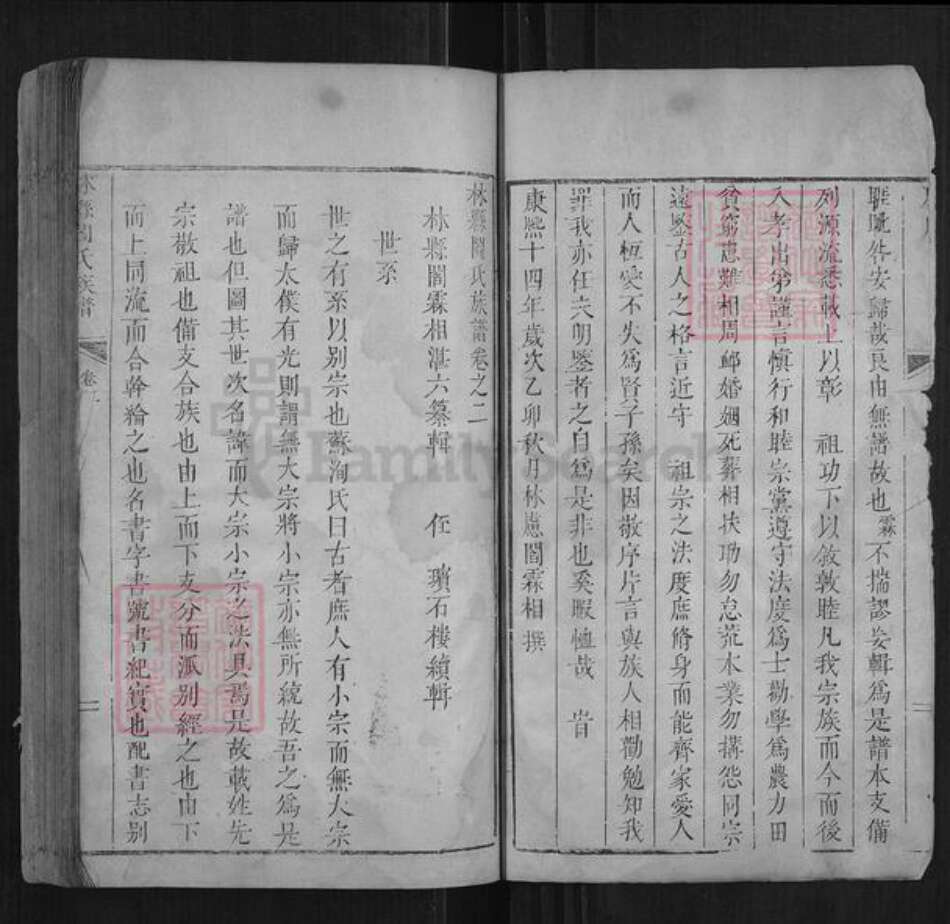 睚眦咎安歸哉良由無譜故也霖不揣謬妄輯為是譜本支備
列源流悉載上以彰　祖功下以敘敦睦凡我宗族而今而後
入孝出第謹言慎行和睦宗黨遵守法度為士勸學為農力田
貧窮患難相周邮婚姻死葬相扶助勿怠荒本業勿搆怨同宗
遠鑒古人之格言近守　祖宗之法度庶脩身而能齊家愛人
而人恆愛不失為賢子孫矣因敬序片言與族人相勸勉知我
罪我亦任夫明鑒者之自為是非也奚暇恤哉　旹
康熙十四年歲次乙卯秋月林慮閻霖相撰
林縣閻氏族譜卷之二
林縣閻霖相湛六纂輯　侄　瓚石樓續輯
世系
世之有系以別宗也蘇洵氏曰古者庶人有小宗而無大宗
而歸太僕有光則謂無大宗將小宗亦無所統故吾之為是
譜也但圖其世次名諱而大宗小宗之法具焉是故載姓先
宗敬祖也備支合族也由上而下支分而派別經之也由下
而上同流而合幹綸之也名書字書號書紀實也配書志別
林縣閻氏族譜
卷二
Family Search